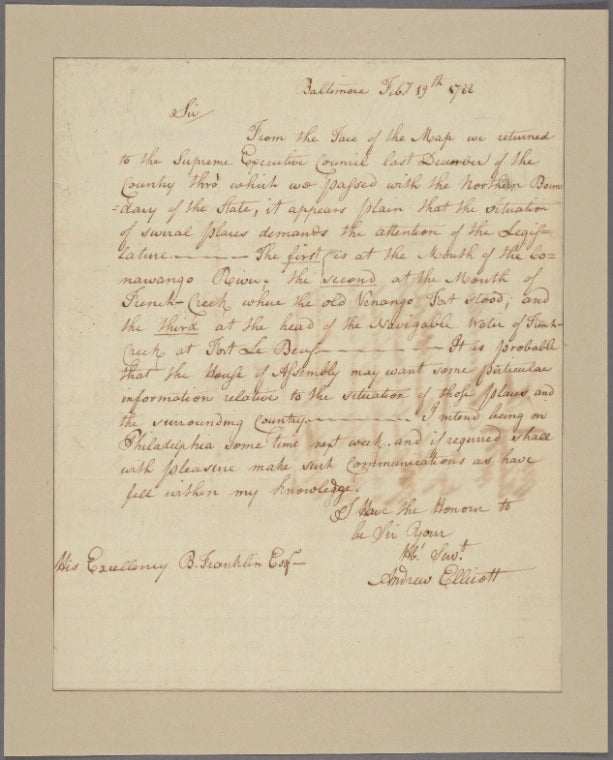 Baltimore Feby 19th 1788
Sir
From the Face of the Map we returned
to the Supreme Executive Council last December of the
Country thro' which we passed with the Northern Boun
=dary of the State, it appears plain that the Situation
of several places demands the attention of the Legis=
lature.———— The first is at the Mouth of the Co=
nawango River; the second at the Mouth of
French-Creek where the old Venango Fort stood; and
the third at the head of the Navigable Water of French-
Creek at Fort Le Beuf.———— It is probable
that the House of Assembly may want some particular
information relative to the situation of those places and
the surrounding Country.———— I intend being in
Philadelphia some time next week. and if required shall
with pleasure make such Communications as have
fell within my knowledge.
I Have the Honour to
be Sir Your
Hbl Servt
Andrew Ellicott
His Excellency B. Franklin Esqr—